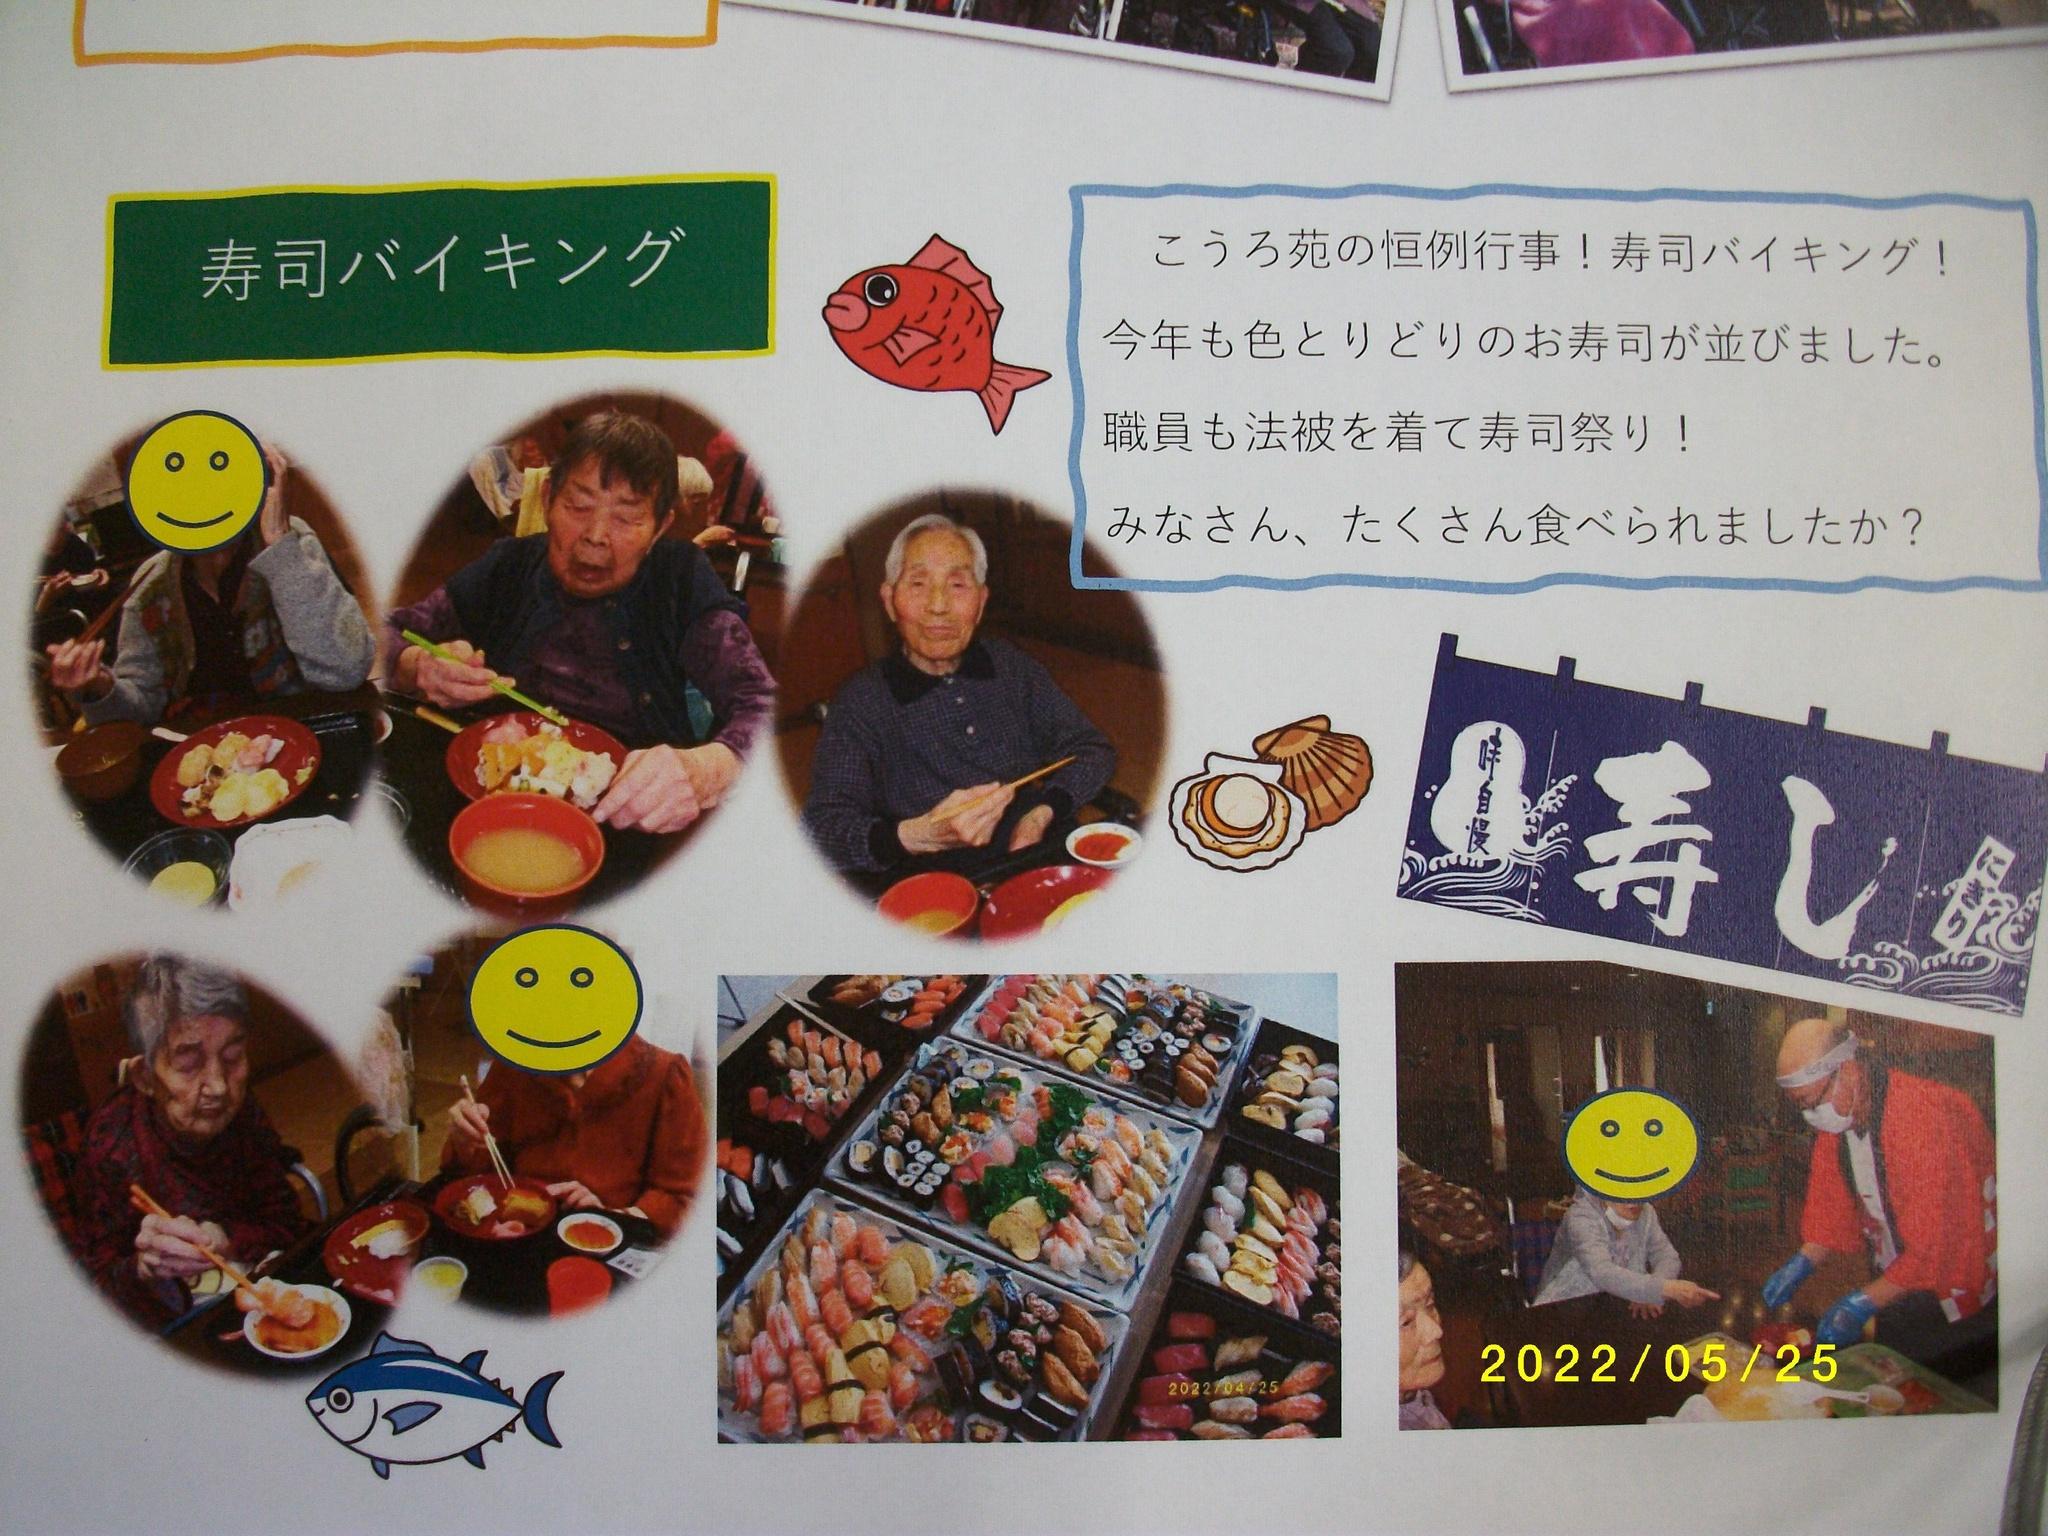 寿司バイキング
こうろ苑の恒例行事！寿司バイキング！
今年も色とりどりのお寿司が並びました。
職員も法被を着て寿司祭り！
みなさん、たくさん食べられましたか？
味自慢
寿し
にぎり
2022/04/25
2022/05/25